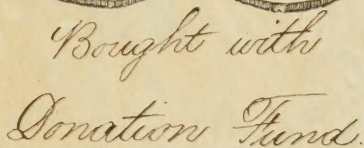 Bought with
Donation Fund.